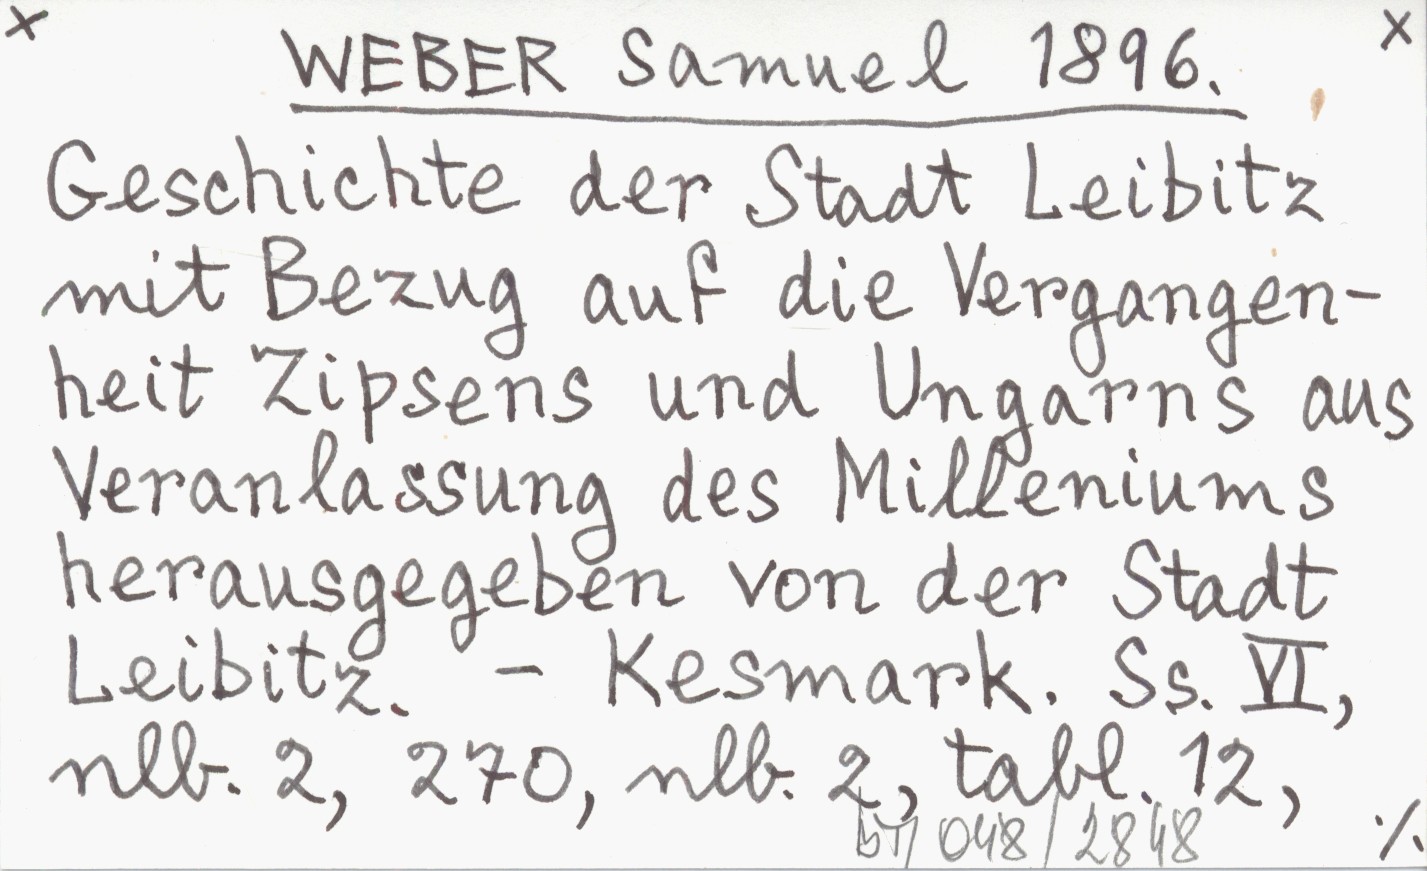 x WEBER Samuel 1896. x
Geschichte der Stadt Leibitz
mit Bezug auf die Vergangen-
heit Zipsens und Ungarns aus
Veranlassung des Milleniums
herausgegeben von der Stadt
Leibitz. - Kesmark. Ss. VI,
nlb. 2, 270, nlb. 2, tabl. 12,
048/2848 ./.